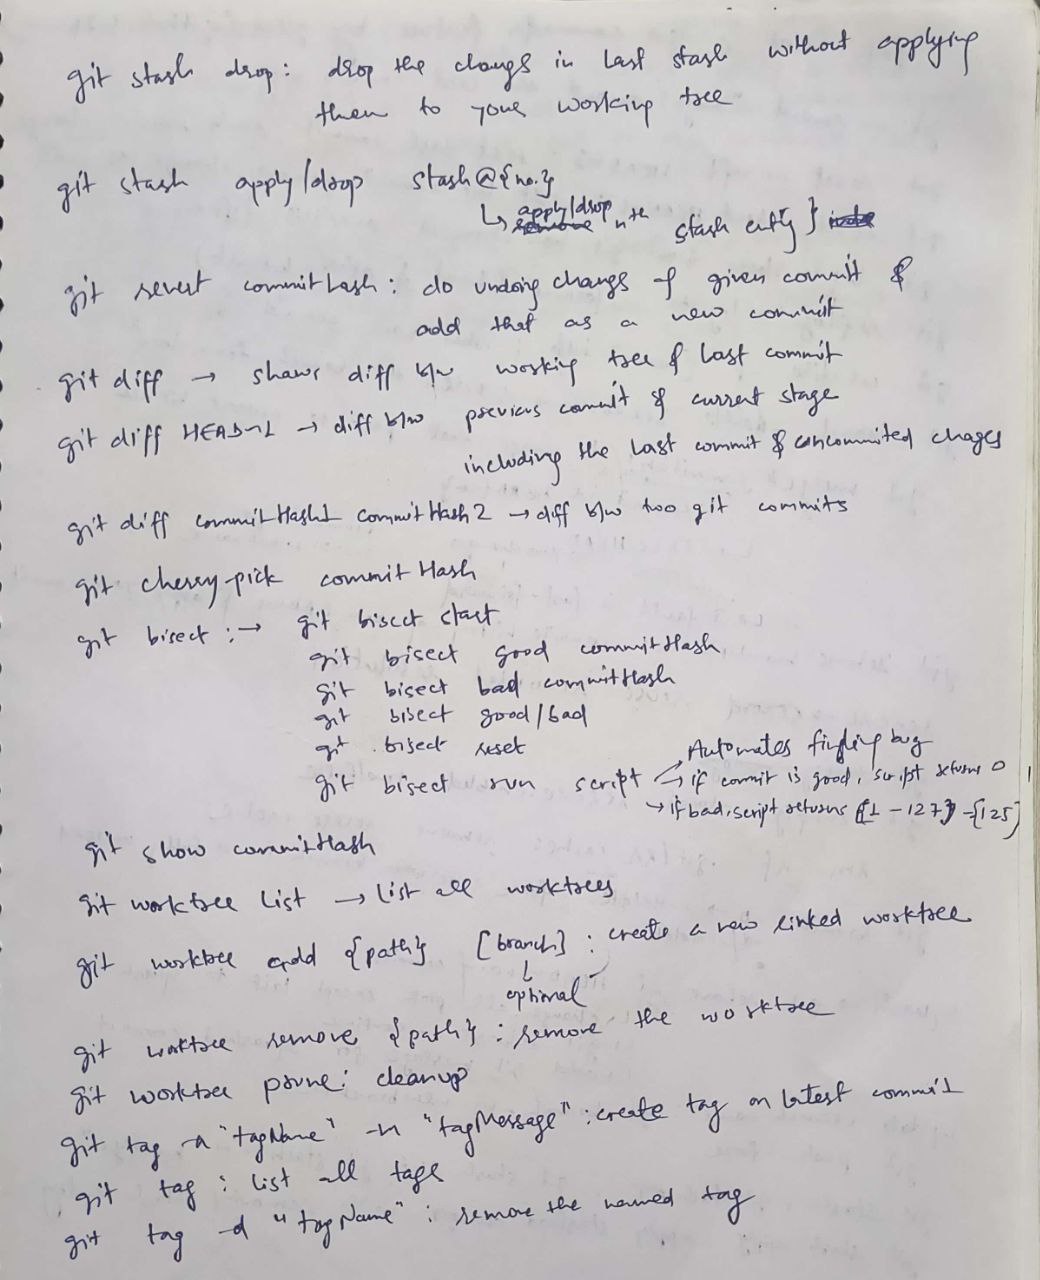 git stash drop : drop the changs in last stash without applying
them to your working tree
git stash apply/drop stash@{no.}
↳ apply/drop nth stash entry }
git revert commithash : do undoing changs of given commit &
add that as a new commit
git diff → shows diff b/w working tree & last commit
git diff HEAD~1 → diff b/w previous commit & current stage
including the last commit & uncommited chages
git diff commitHash1 commitHash2 → diff b/w two git commits
git cherry-pick commitHash
git bisect : → git bisect start
git bisect good commitHash
git bisect bad commitHash
git bisect good/bad
git bisect reset
→ Automates finding bug
git bisect run script → if commit is good, script returns 0
→ if bad, script returns {1 - 127} - {125}
git show commitHash
git worktree list → list all worktrees
git worktree add {path} [branch] : create a new linked worktree
↳ optional
git worktree remove {path} : remove the worktree
git worktree prune : cleanup
git tag -a "tagName" -m "tagMessage" : create tag on latest commit
git tag : list all tags
git tag -d "tagName" : remove the named tag